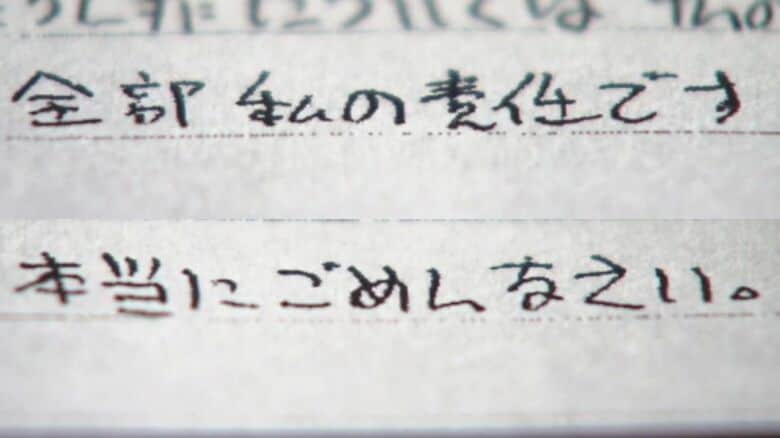 全部私の責任です
本当にごめんなさい。